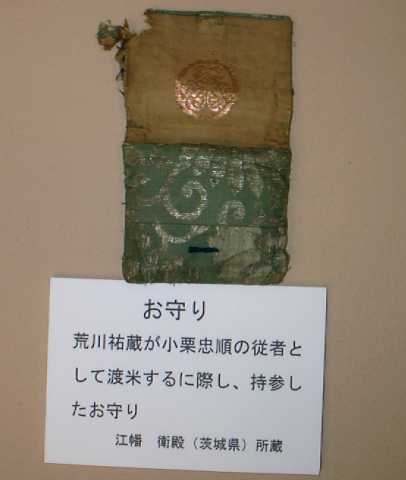 お守り
荒川祐蔵が小栗忠順の従者と
して渡米するに際し、持参し
たお守り
江幡　衛殿（茨城県）所蔵